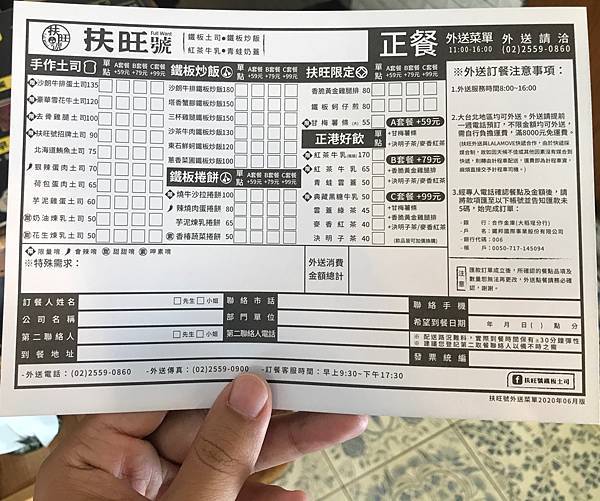 扶旺號 Full Want
鐵板土司●鐵板炒飯
紅茶牛乳●青蛙奶蓋
正餐
外送菜單
11:00-16:00
外送請洽
(02)2559-0860
手作土司 單點 A套餐+59元 B套餐+79元 C套餐+99元
沙朗牛排蛋土司135
豪華雪花牛土司120
去骨雞腿土司100
扶旺號招牌土司90
北海道鮪魚土司75
狠辣肉蛋土司70
荷包肉蛋土司60
芋泥煉乳土司65
奶油煉乳土司50
花生煉乳土司50
鐵板炒飯 單點 A套餐+59元 B套餐+79元 C套餐+99元
沙朗牛排鐵板炒飯180
塔香蟹腳鐵板炒飯150
三杯雞腿鐵板炒飯150
沙茶牛肉鐵板炒飯130
東石鮮蚵鐵板炒飯120
薑香菜圃鐵板炒飯100
鐵板捲餅 單點 A套餐+59元 B套餐+79元 C套餐+99元
燒牛沙拉捲餅100
辣燒肉蛋捲餅80
芋泥煉乳捲餅65
香椿蔬菜捲餅50
扶旺限定 單點 A套餐+59元 B套餐+79元 C套餐+99元
香脆黃金雞腿排 80
鐵板蚵仔煎 80
甘梅薯條(大) 55
正港好飲 單點
紅茶牛乳(瓶裝) 170
紅茶牛乳 65
青蛙雲蓋 50
典藏黑糖牛乳 50
雲蓋綠茶 45
麥香紅茶 40
決明子茶 40
A套餐+59元
+甘梅薯條
+決明子茶/麥香紅茶
B套餐+79元
+香脆黃金雞腿排
+決明子茶/麥香紅茶
C套餐+99元
+甘梅薯條
+香脆黃金雞腿排
+決明子茶/麥香紅茶
(飲品皆可加價換購)
限量唷 會辣唷 甜甜唷 呷素唷
※特殊需求：
外送消費
金額總計
※外送訂餐注意事項：
1.外送服務時間8:00~16:00
2.大台北地區均可外送。外送請提前一週電話預訂，不限金額均可外送，需自行負擔運費，滿8000元免運費。
(扶旺外送與LALAMOVE快遞合作，由於快遞採媒合制，故如因天候不佳或其他因素沒有媒合到快遞，則轉由計程車配送，運費即為計程車車資，麻煩直接交予計程車司機。)
3.經專人電話確認餐點及金額後，請將款項匯至以下帳號並告知匯款末5碼，始完成訂單：
-銀行：合作金庫(大稻埕分行)
-戶名：國邦國際事業股份有限公司
-銀行代碼：006
-帳戶：0050-717-145094
注意
匯款訂單成立後，所確認的餐點品項及數量恕無法再更改，外送點餐請務必確認，謝謝。
訂餐人姓名 □先生□小姐 聯絡市話 聯絡手機
公司名稱 部門單位 希望到餐日期 年 月 日( ) 點 分
第二聯絡人 □先生□小姐 第二聯絡人電話
※ 配送路況難料，實際到餐時間保有±30分鐘彈性
※ 建議您登記第二取餐聯絡人以備不時之需
到餐地址 發票統編
-外送電話：(02)2559-0860 -外送傳真：(02)2559-0900 -訂餐客服時間：早上9:30~下午17:30
扶旺號鐵板土司
扶旺號外送菜單2020年06月版